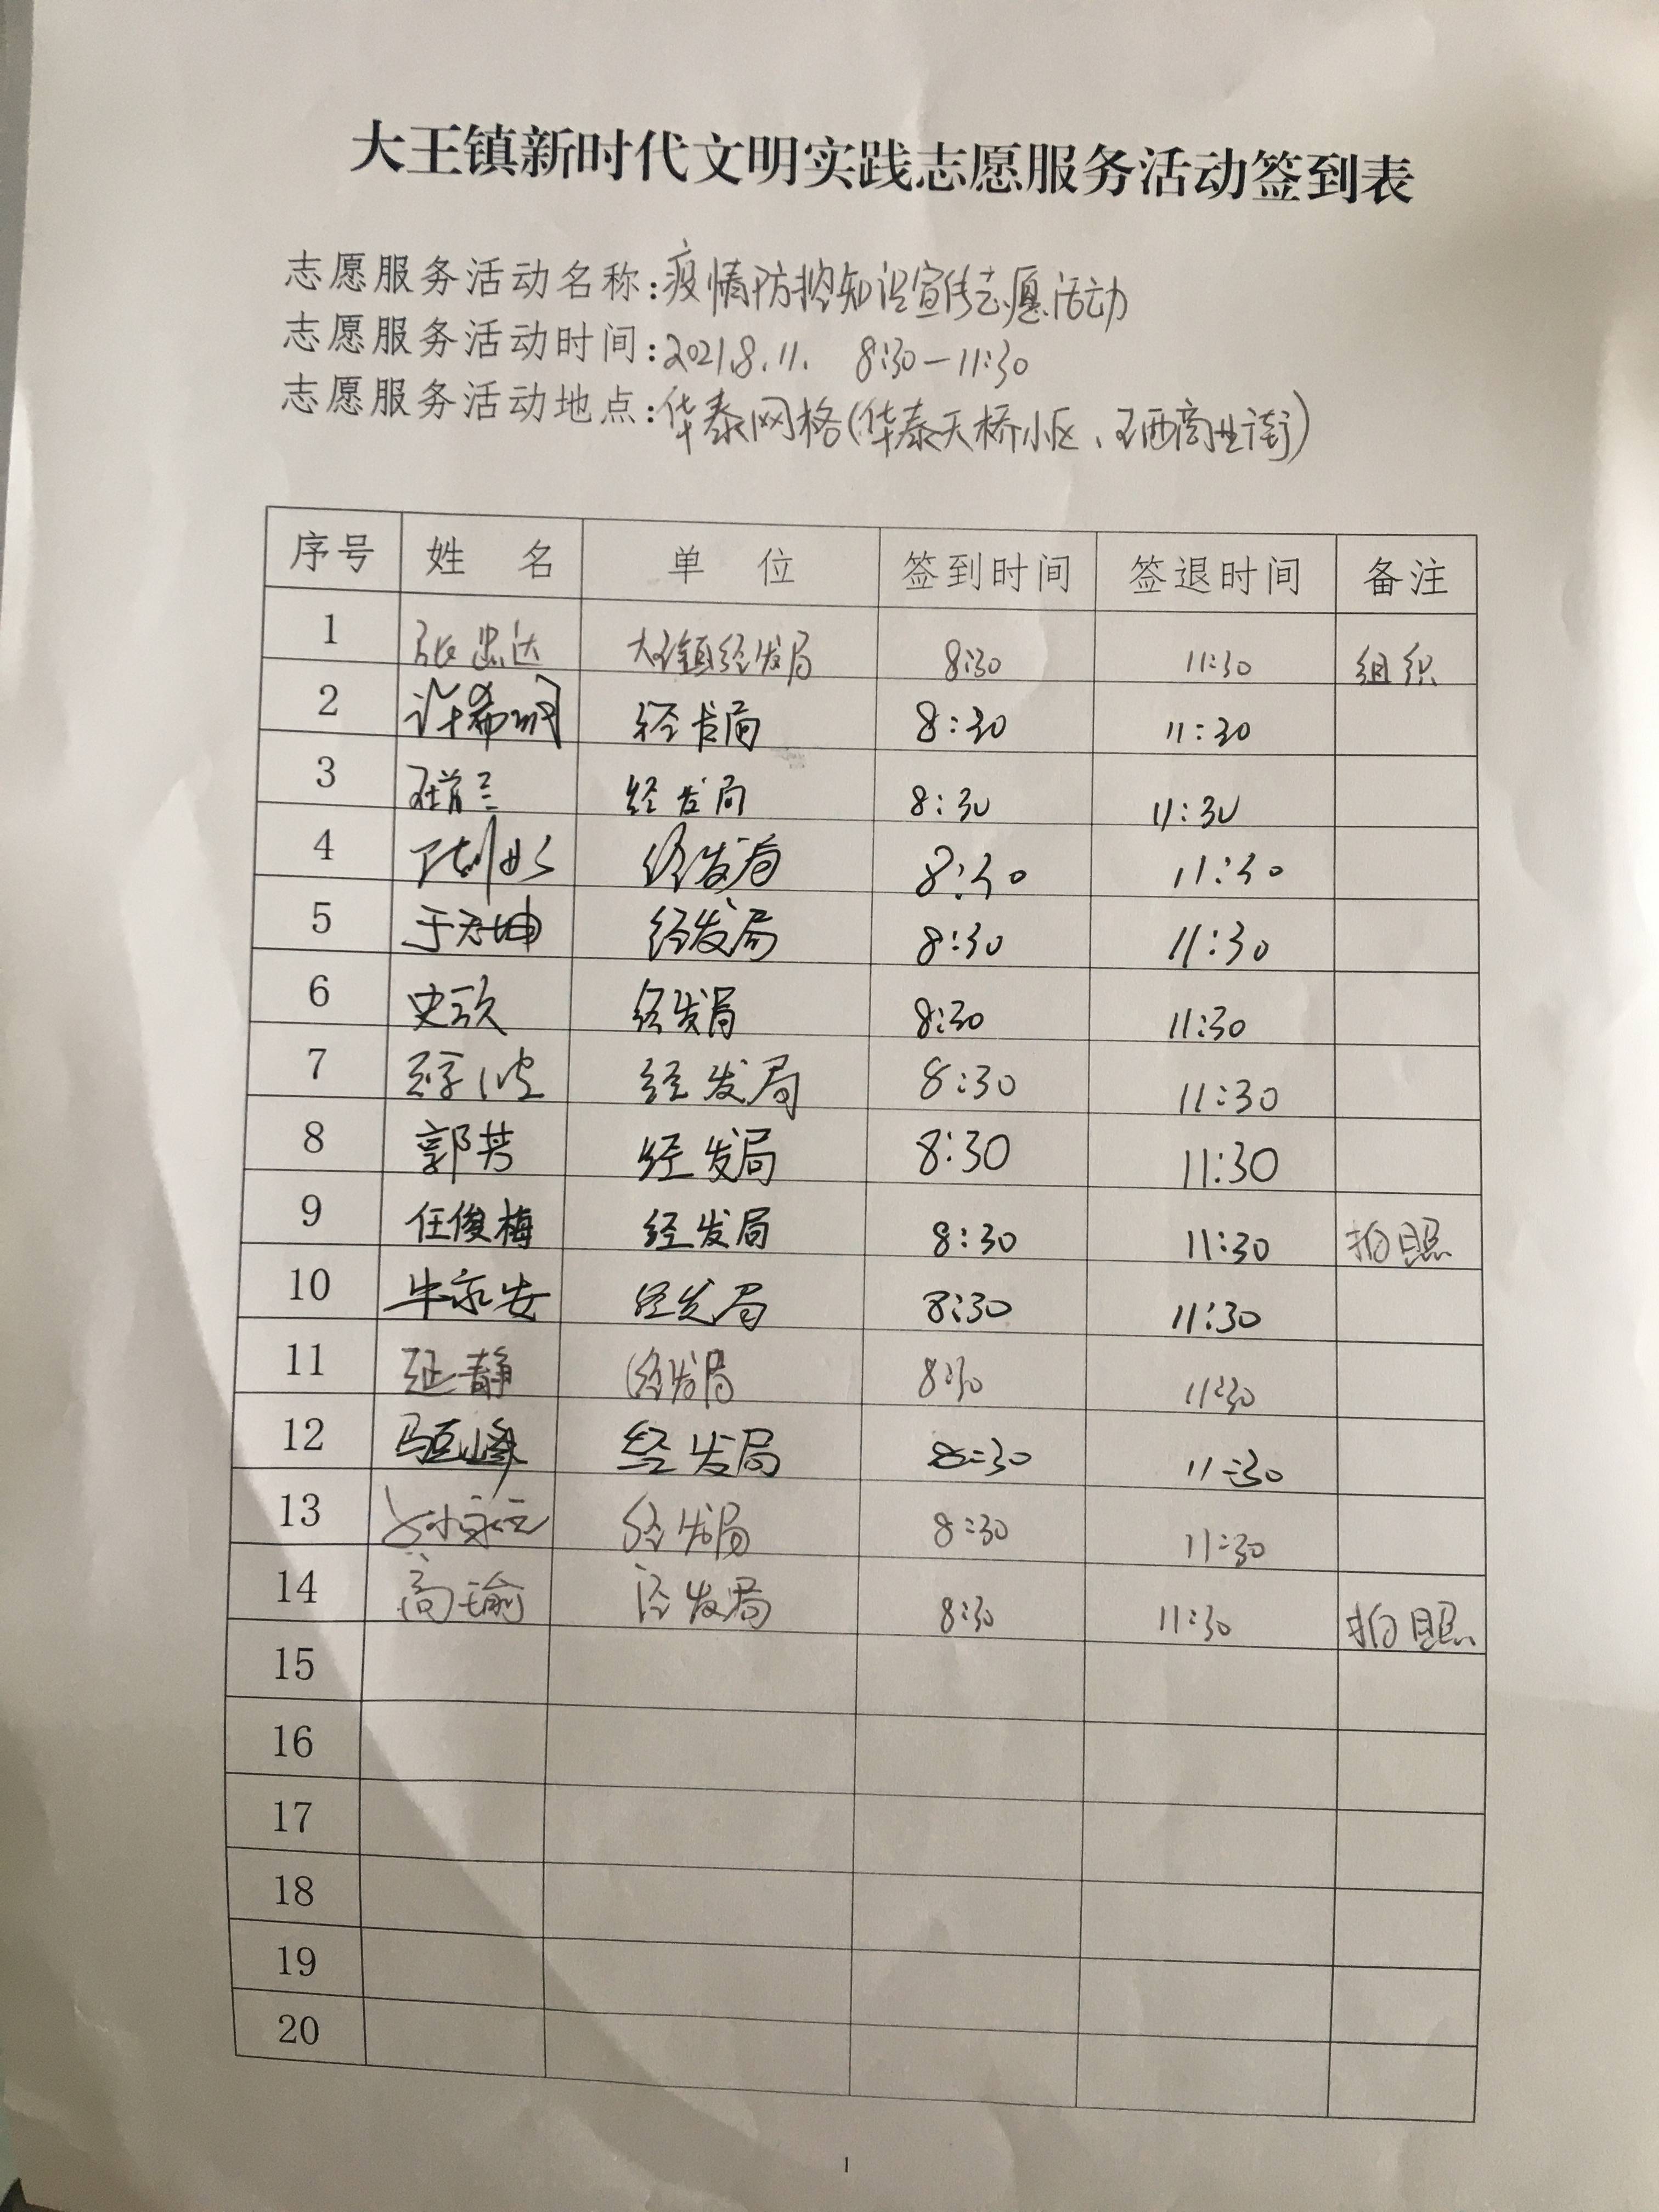 大王镇新时代文明实践志愿服务活动签到表
志愿服务活动名称:疫情防控知识宣传志愿活动
志愿服务活动时间:2021.8.11. 8:30—11:30
志愿服务活动地点:华泰网格(华泰天桥小区、王西商业街)
序号 姓 名 单 位 签到时间 签退时间 备注
1 张忠达 大王镇经发局 8:30 11:30 组织
2 经发局 8:30 11:30
3 经发局 8:30 11:30
4 经发局 8:30 11:30
5 经发局 8:30 11:30
6 经发局 8:30 11:30
7 经发局 8:30 11:30
8 郭芳 经发局 8:30 11:30
9 任俊梅 经发局 8:30 11:30 拍照
10 牛永安 经发局 8:30 11:30
11 延静 经发局 8:30 11:30
12 经发局 8:30 11:30
13 经发局 8:30 11:30
14 高瑜 经发局 8:30 11:30 拍照
15
16
17
18
19
20
1